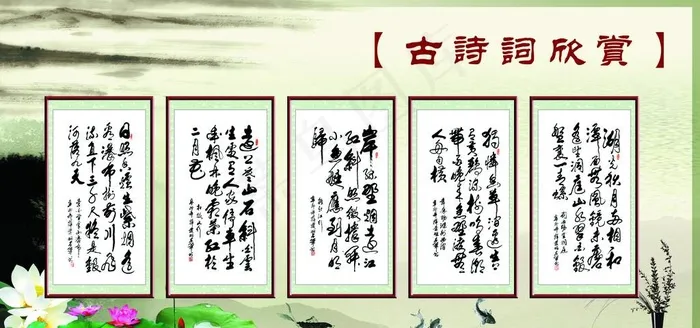 【古詩詞欣賞】
日照香爐生紫烟遥
看瀑布挂前川飞
流直下三千尺疑是銀
河落九天
遠上寒山石徑斜白雲
生處有人家停車坐
愛楓林晚霜葉红於
二月花
岸緑野烟遠江
红斜照微撑開
小漁艇應到月明
歸
独憐幽草澗邊生上
有黄鸝深樹鳴春潮
帶雨晚來急野渡無
人舟自横
湖光秋月兩相和
潭面無風鏡未磨
遥望洞庭山水翠白銀
盤裏一青螺